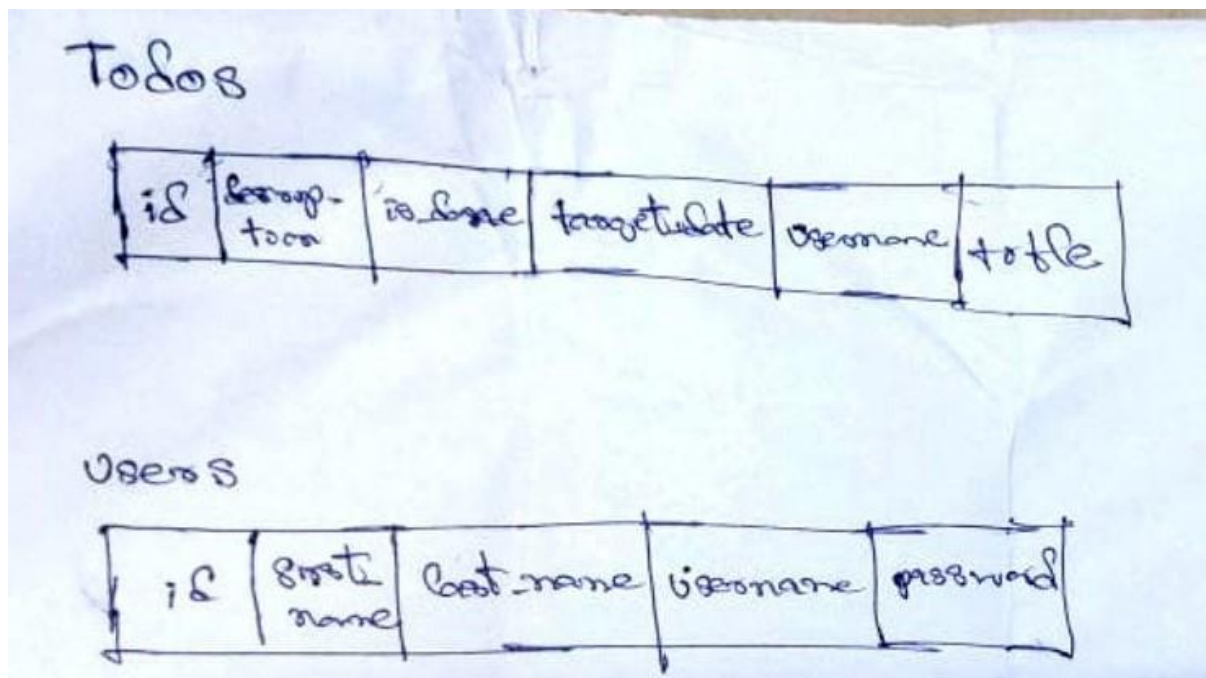 Todos
id
descrip-
tion
is_done
target_date
username
title
Users
id
first_
name
last_name
username
password